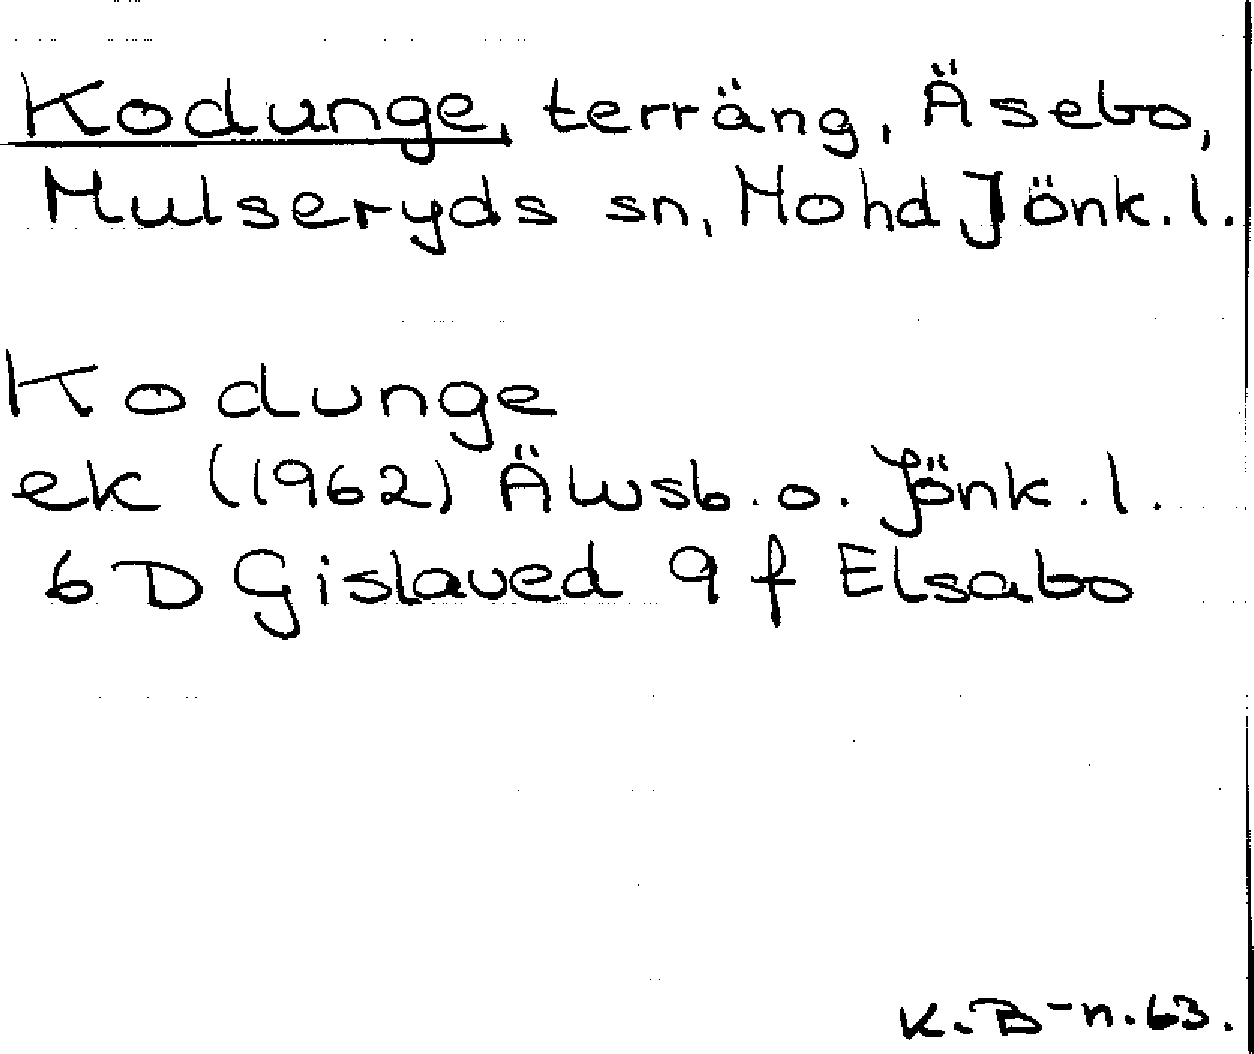 Kodunge, terräng, Äsebo,
Mulseryds sn, Mohd Jönk.l.
Kodunge
ek (1962) Ävsb. o. Jönk.l.
6D Gislaved 9f Elsabo
K.B-n.63.